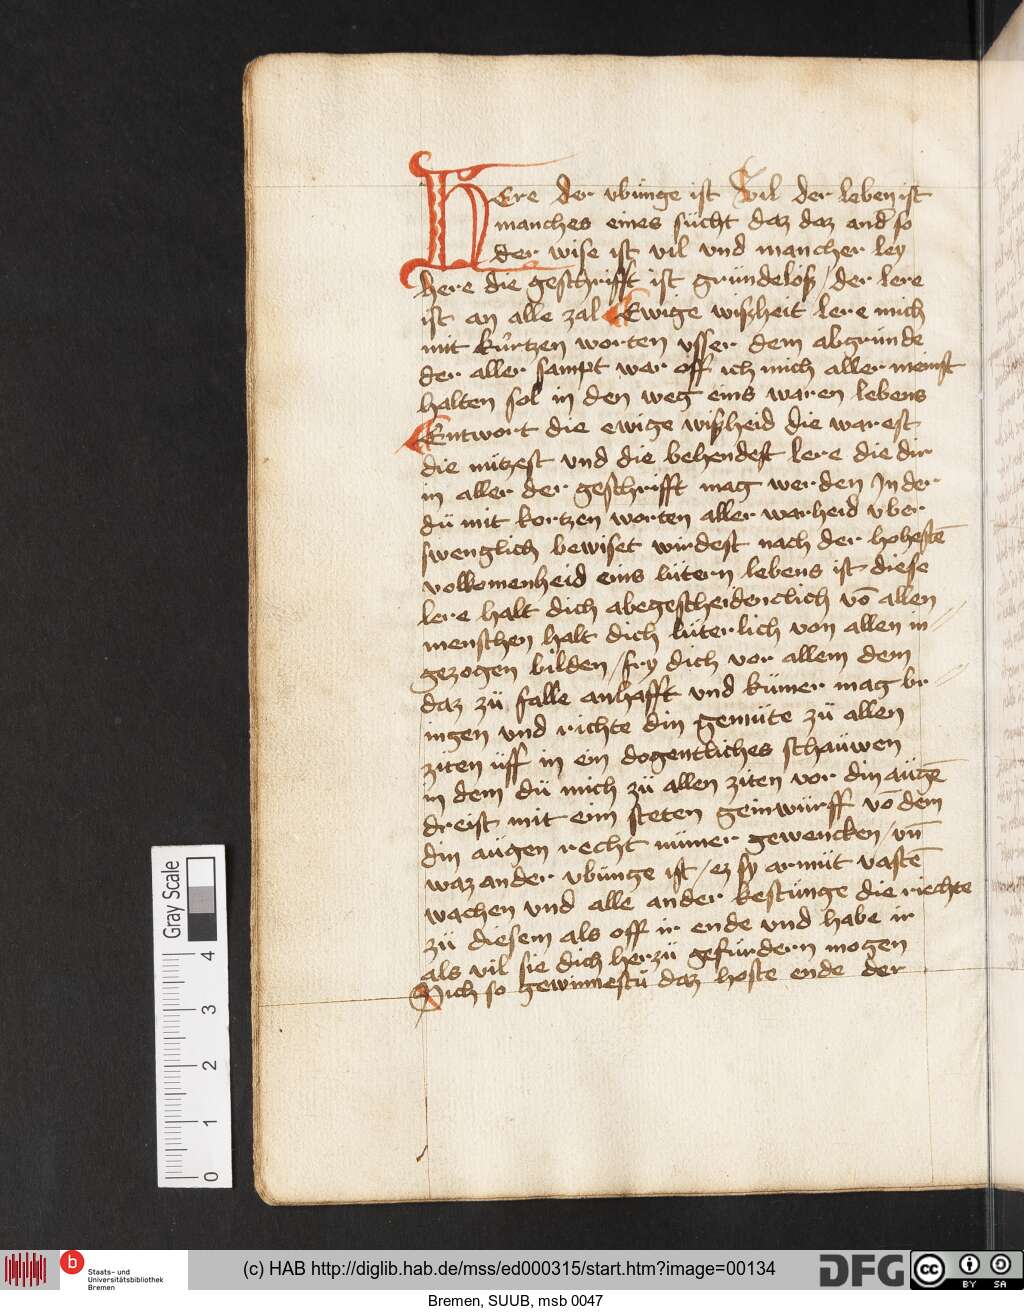 HEre der vbünge ist vil der leben ist
manches eines sücht daz daz and so
der wise ist vil vnd mancher ley
here die geschrifft ist gründeloß / der lere
ist an alle zal Ewige wißheit lere mich
mit kürtzen worten vsser dem abgründe
der aller sampt war off ich mich aller meinst
halten sol in den weg eins waren lebens
Entwort die ewige wißheid die warest
die nützest vnd die behendest lere die dir
in aller der geschrifft mag werden In der
dü mit kortzen worten aller warheid vber
swenglich bewiset wirdest nach der hohestē
volkomenheid eins lütern lebens ist diese
lere halt dich abegescheidenclich vō allen
menschen halt dich lüterlich von allen in
gezogen bilden / fry dich vor allem dem
daz zü falle anhafft vnd kümer mag br
ingen vnd richte din gemüte zü allen
ziten üff in ein dogentliches schaüwen
in dem dü mich zü allen ziten vor din aügē
dreist mit eim steten geinwürff vō dem
din aügen recht nümer gewencken / vn̄
waz ander vbünge ist / ez sy armüt vastē
wachen vnd alle ander kestünge die riechte
zü diesem als off ir ende vnd habe ir
als vil sie dich herzü gefürdern mogen
Sich so gewinnestü daz hoste ende der
Gray Scale
4
3
2
1
0
b
Staats- und
Universitätsbibliothek
Bremen
(c) HAB http://diglib.hab.de/mss/ed000315/start.htm?image=00134
DFG
cc
BY SA
Bremen, SUUB, msb 0047